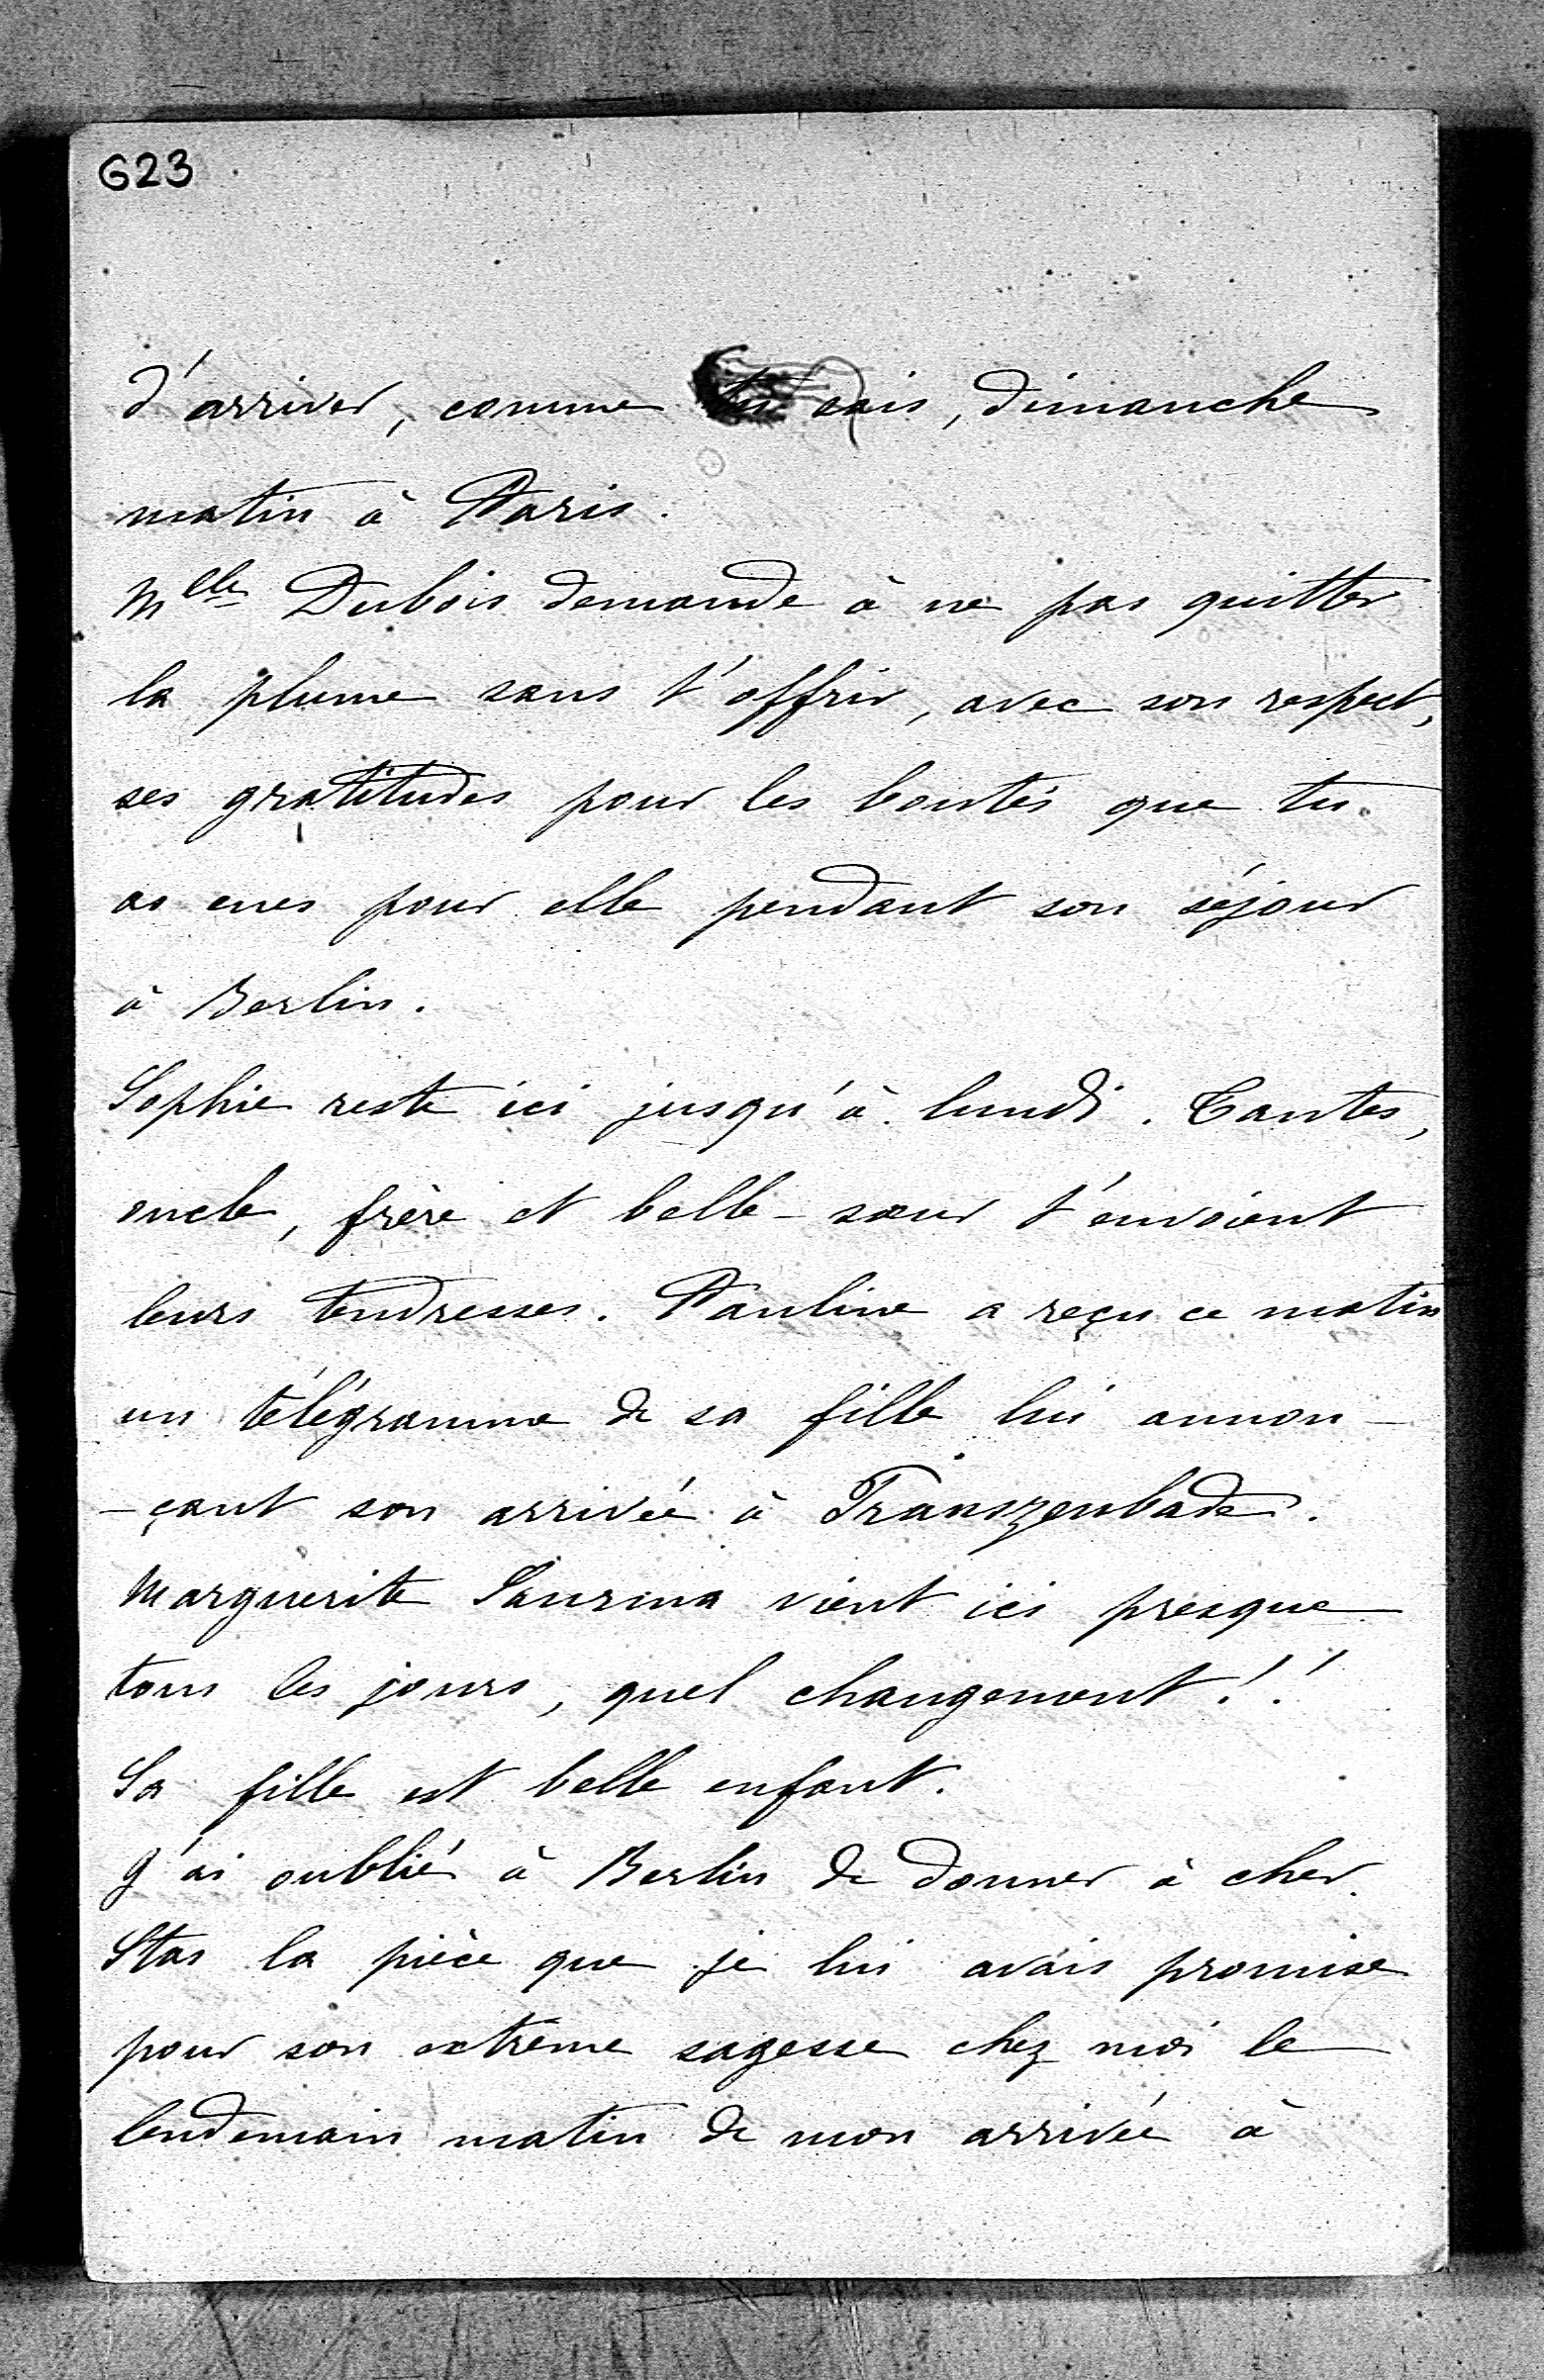 623
d'arriver, comme tu sais, dimanche
matin à Paris.
Mlle Dubois demande à ne pas quitter
la plume sans t'offrir, avec son respect,
ses gratitudes pour les bontés que tu
as eues pour elle pendant son séjour
à Berlin.
Sophie reste ici jusqu'à lundi. Tantes,
oncle, frère et belle-sœur t'envoient
leurs tendresses. Pauline a reçu ce matin
un télégramme de sa fille lui annon-
-çant son arrivée à Franzensbade.
Marguerite vient ici presque
tous les jours, quel changement!!
Sa fille est belle enfant.
J'ai oublié à Berlin de donner à cher
Stas la pièce que je lui avais promise
pour son extrême sagesse chez moi le
lendemain matin de mon arrivée à